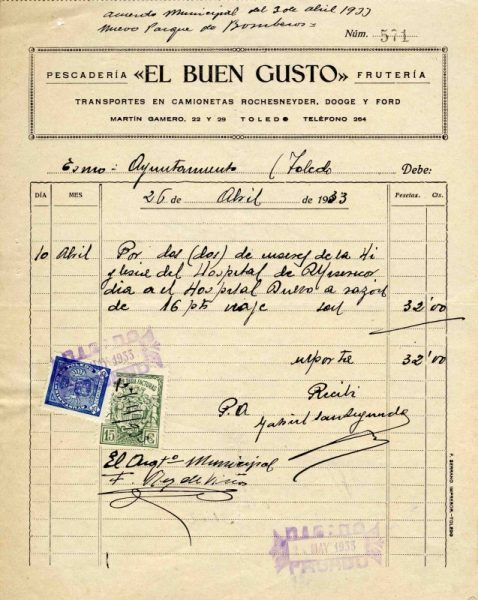 Acuerdo Municipal del 3 de abril 1933
Nuevo Parque de Bomberos =
Núm. 571
PESCADERÍA «EL BUEN GUSTO» FRUTERÍA
TRANSPORTES EN CAMIONETAS ROCHESNEYDER, DOOGE Y FORD
MARTÍN GAMERO, 22 Y 29 TOLEDO TELÉFONO 264
Exmo = Ayuntamiento (Toledo Debe:
DÍA MES 26 de Abril de 1933 Pesetas Cts.
10 Abril Por dos (dos) de de la
del Hospital de Misericor
dia a el Hospital Nuevo a razón
de 16 pts viaje son 32'00
importa 32'00
Recibí
P.A
15 C
El Arqto Municipal
F.
MAY 1933
PAGADO
F. SERRANO, IMPRESOR.-TOLEDO